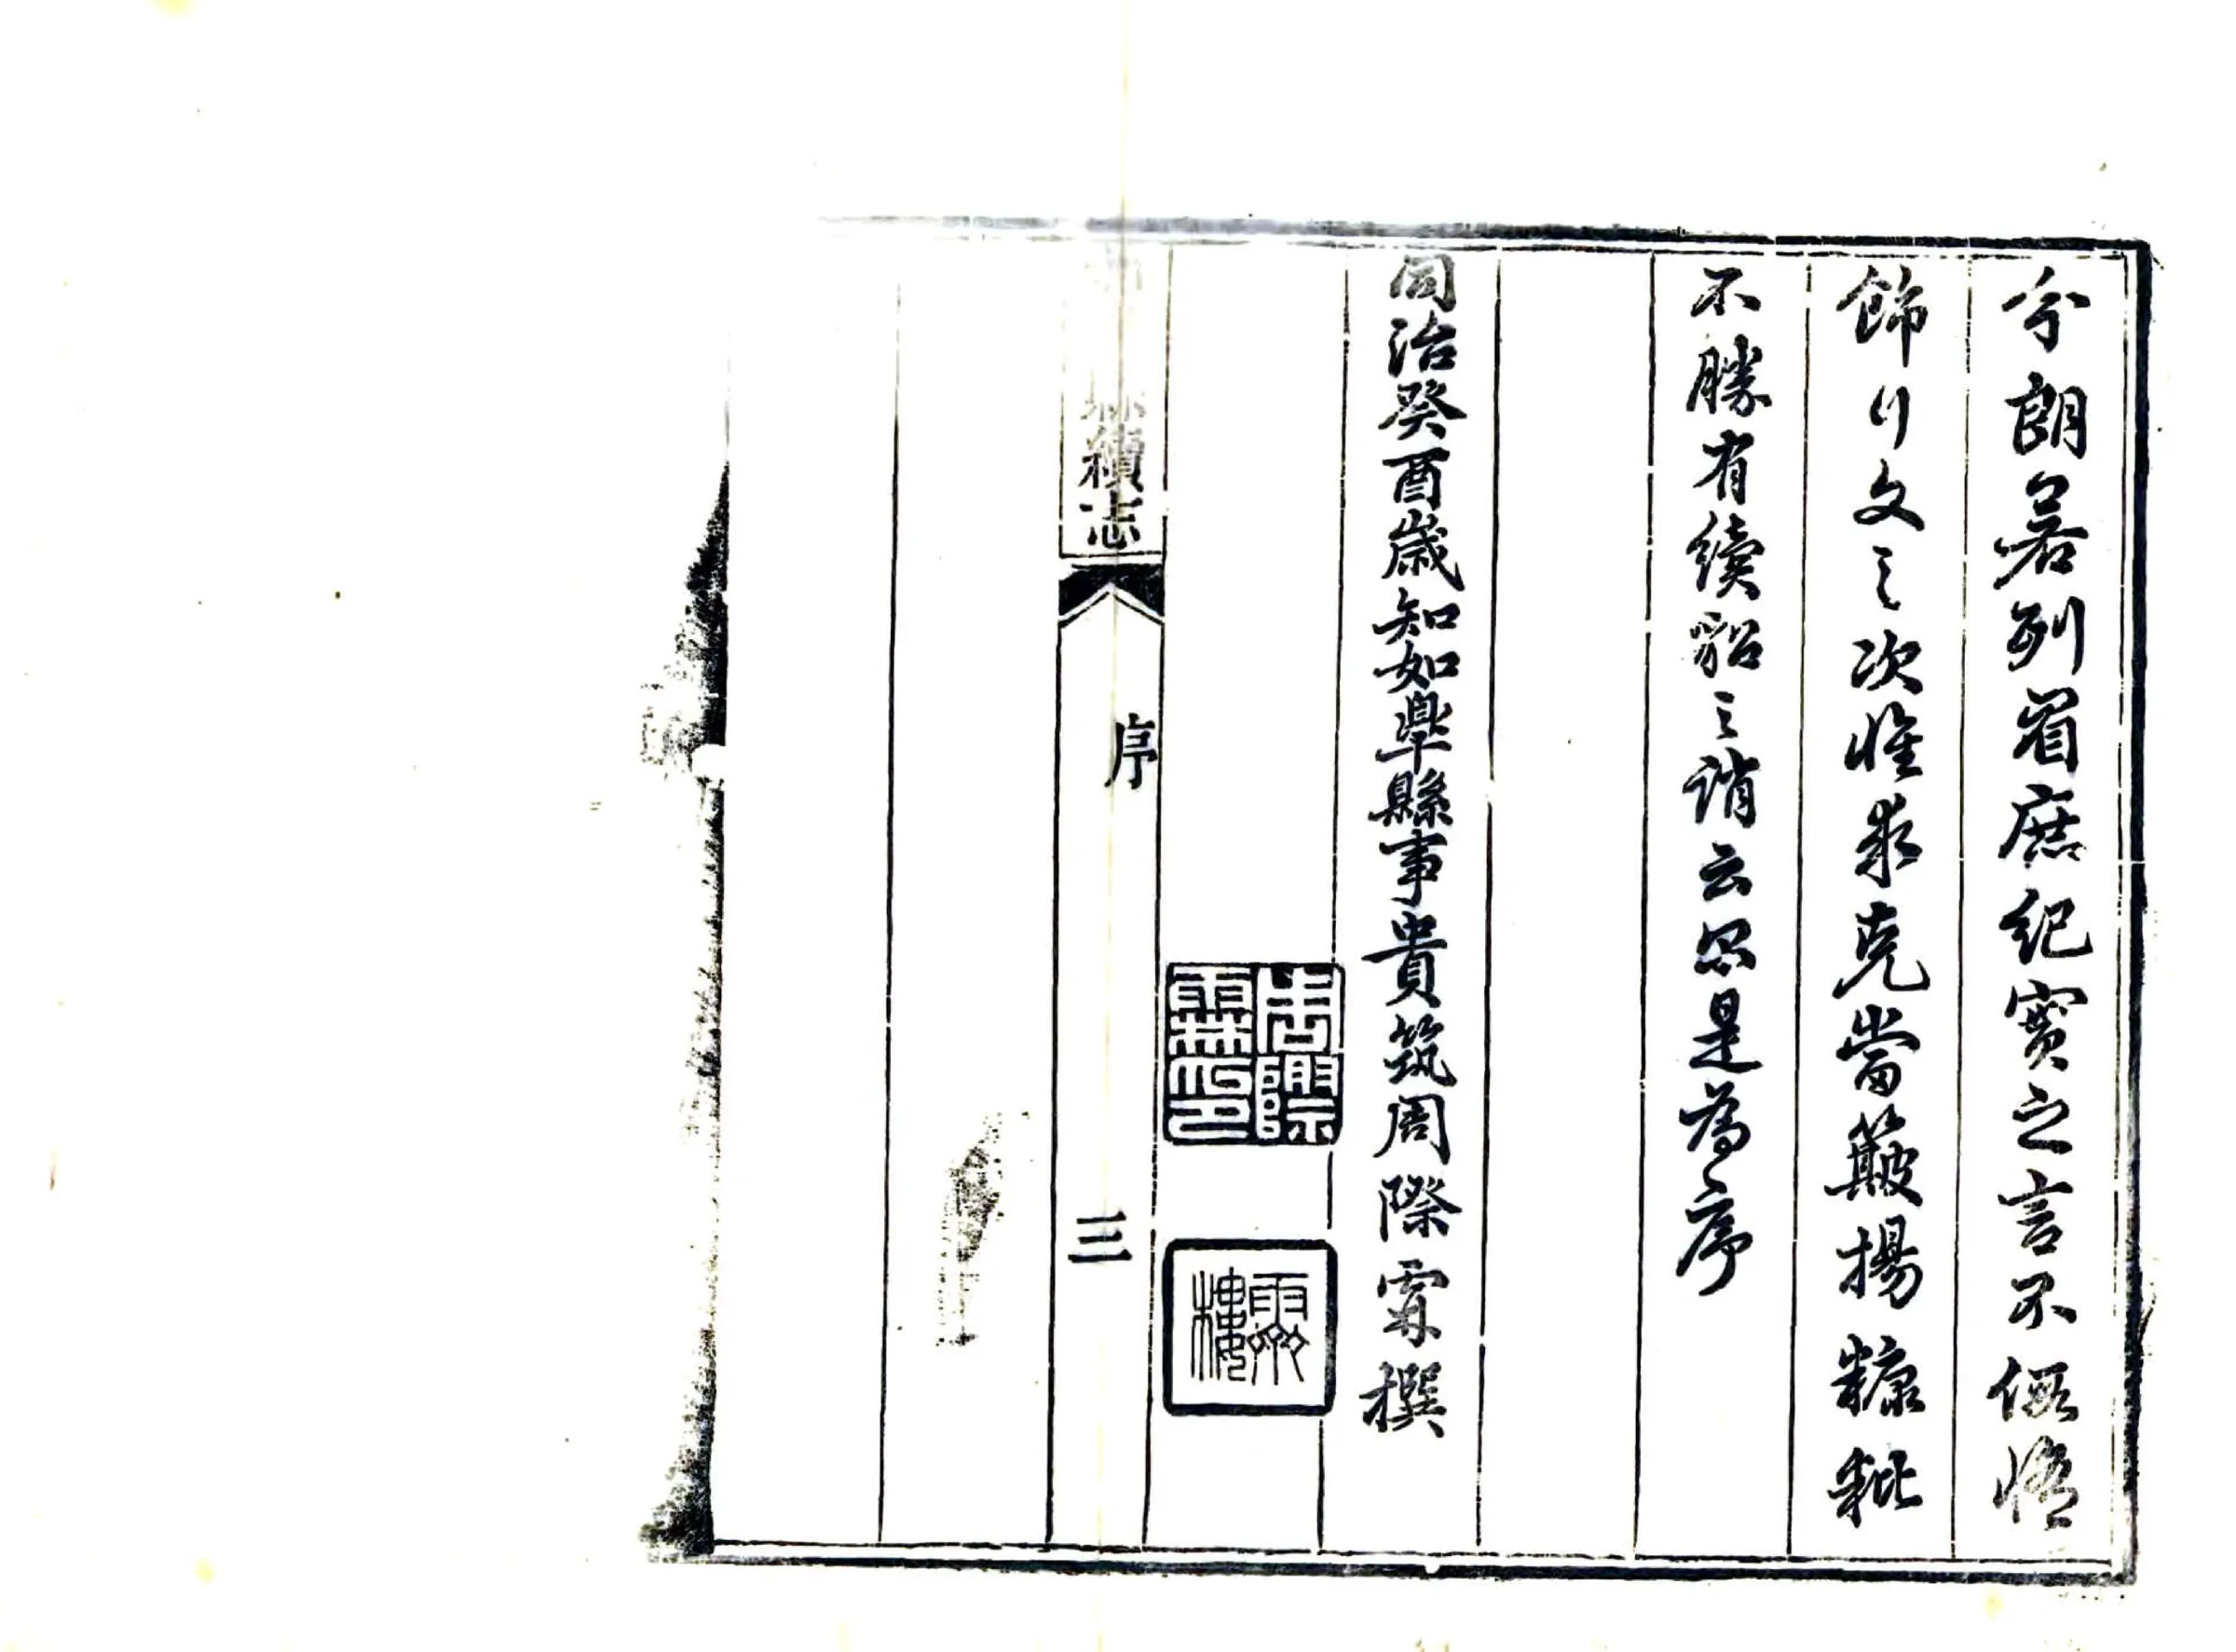 分朗若列眉庶紀實之言不假修
飾行文之次惟求克當簸揚糠粃
不勝有續貂之誚云尔是為序
同治癸酉歲知如臯縣事貴筑周際霖撰
周際霖印
樓
縣續志
序
三